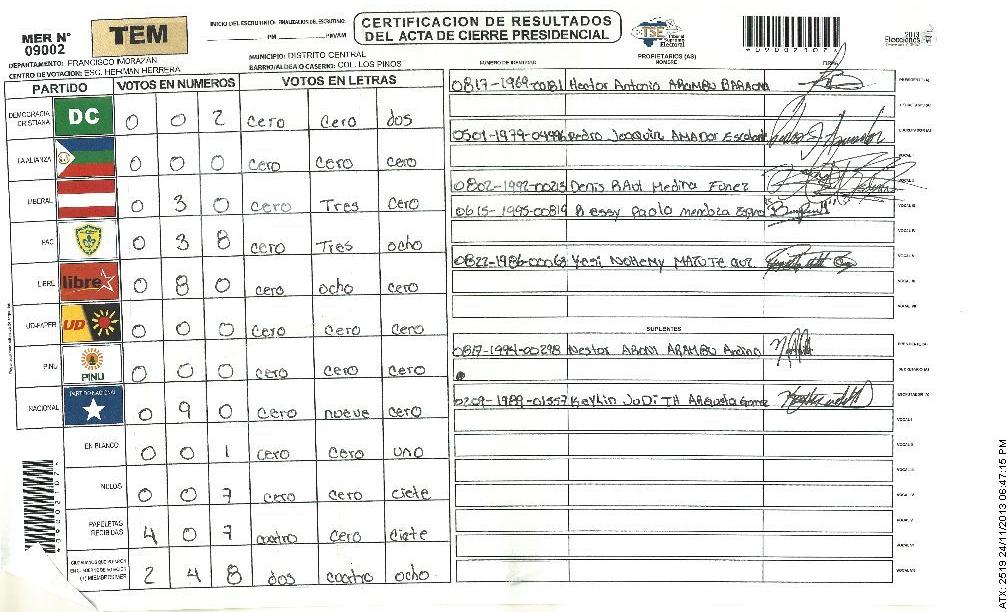 MER N° 09002
TEM
INICIO DEL ESCRUTINIO: FINALIZACION DEL ESCRUTINIO:
PM PM/AM
CERTIFICACION DE RESULTADOS
DEL ACTA DE CIERRE PRESIDENCIAL
TSE Tribunal Supremo Electoral
2013 Elecciones
DEPARTAMENTO: FRANCISCO MORAZAN
MUNICIPIO: DISTRITO CENTRAL
CENTRO DE VOTACION: ESC. HERMAN HERRERA
BARRIO/ALDEA O CASERIO: COL. LOS PINOS
PARTIDO VOTOS EN NUMEROS VOTOS EN LETRAS
DEMOCRACIA CRISTIANA DC 0 0 2 cero cero dos
LA ALIANZA 0 0 0 cero cero cero
LIBERAL 0 3 0 cero Tres cero
PAC 0 3 8 cero Tres ocho
LIBRE libre 0 8 0 cero ocho cero
UD-FAPER UD 0 0 0 cero cero cero
PINU PINU 0 0 0 cero cero cero
NACIONAL PARTIDO NACIONAL 0 9 0 cero nueve cero
EN BLANCO 0 0 1 cero cero uno
NULOS 0 0 7 cero cero ciete
PAPELETAS RECIBIDAS 4 0 7 cuatro cero ciete
CIUDADANOS QUE VOTARON EN CUADERNO DE VOTACION (+) MIEMBROS MER 2 4 8 dos cuatro ocho
PROPIETARIOS (AS)
NUMERO DE IDENTIDAD NOMBRE FIRMA
0817-1969-00181 Hector Antonio ARAMBU BARAONA PRESIDENTE(A)
0501-1979-04996 Pedro Joaquin AMADOR Escalante ESCRUTADOR (A)
VOCAL I
0802-1992-00213 Denis RAul Medina Funez VOCAL II
0615-1995-00819 Bessy Paola mendoza VOCAL III
VOCAL IV
0822-1986-00063 Yesi NOHEMY MATUTE VOCAL V
VOCAL VI
VOCAL VII
SUPLENTES
0817-1994-00298 Nestor ARAMBU Andino PRESIDENTE(A)
SECRETARIO (A)
0209-1989-01557 Keylin JuDiTH Argueta Gomez ESCRUTADOR (A)
VOCAL I
VOCAL II
VOCAL III
VOCAL IV
VOCAL V
VOCAL VI
VOCAL VII
ATX: 2519 24/11/2013 06:47:15 PM